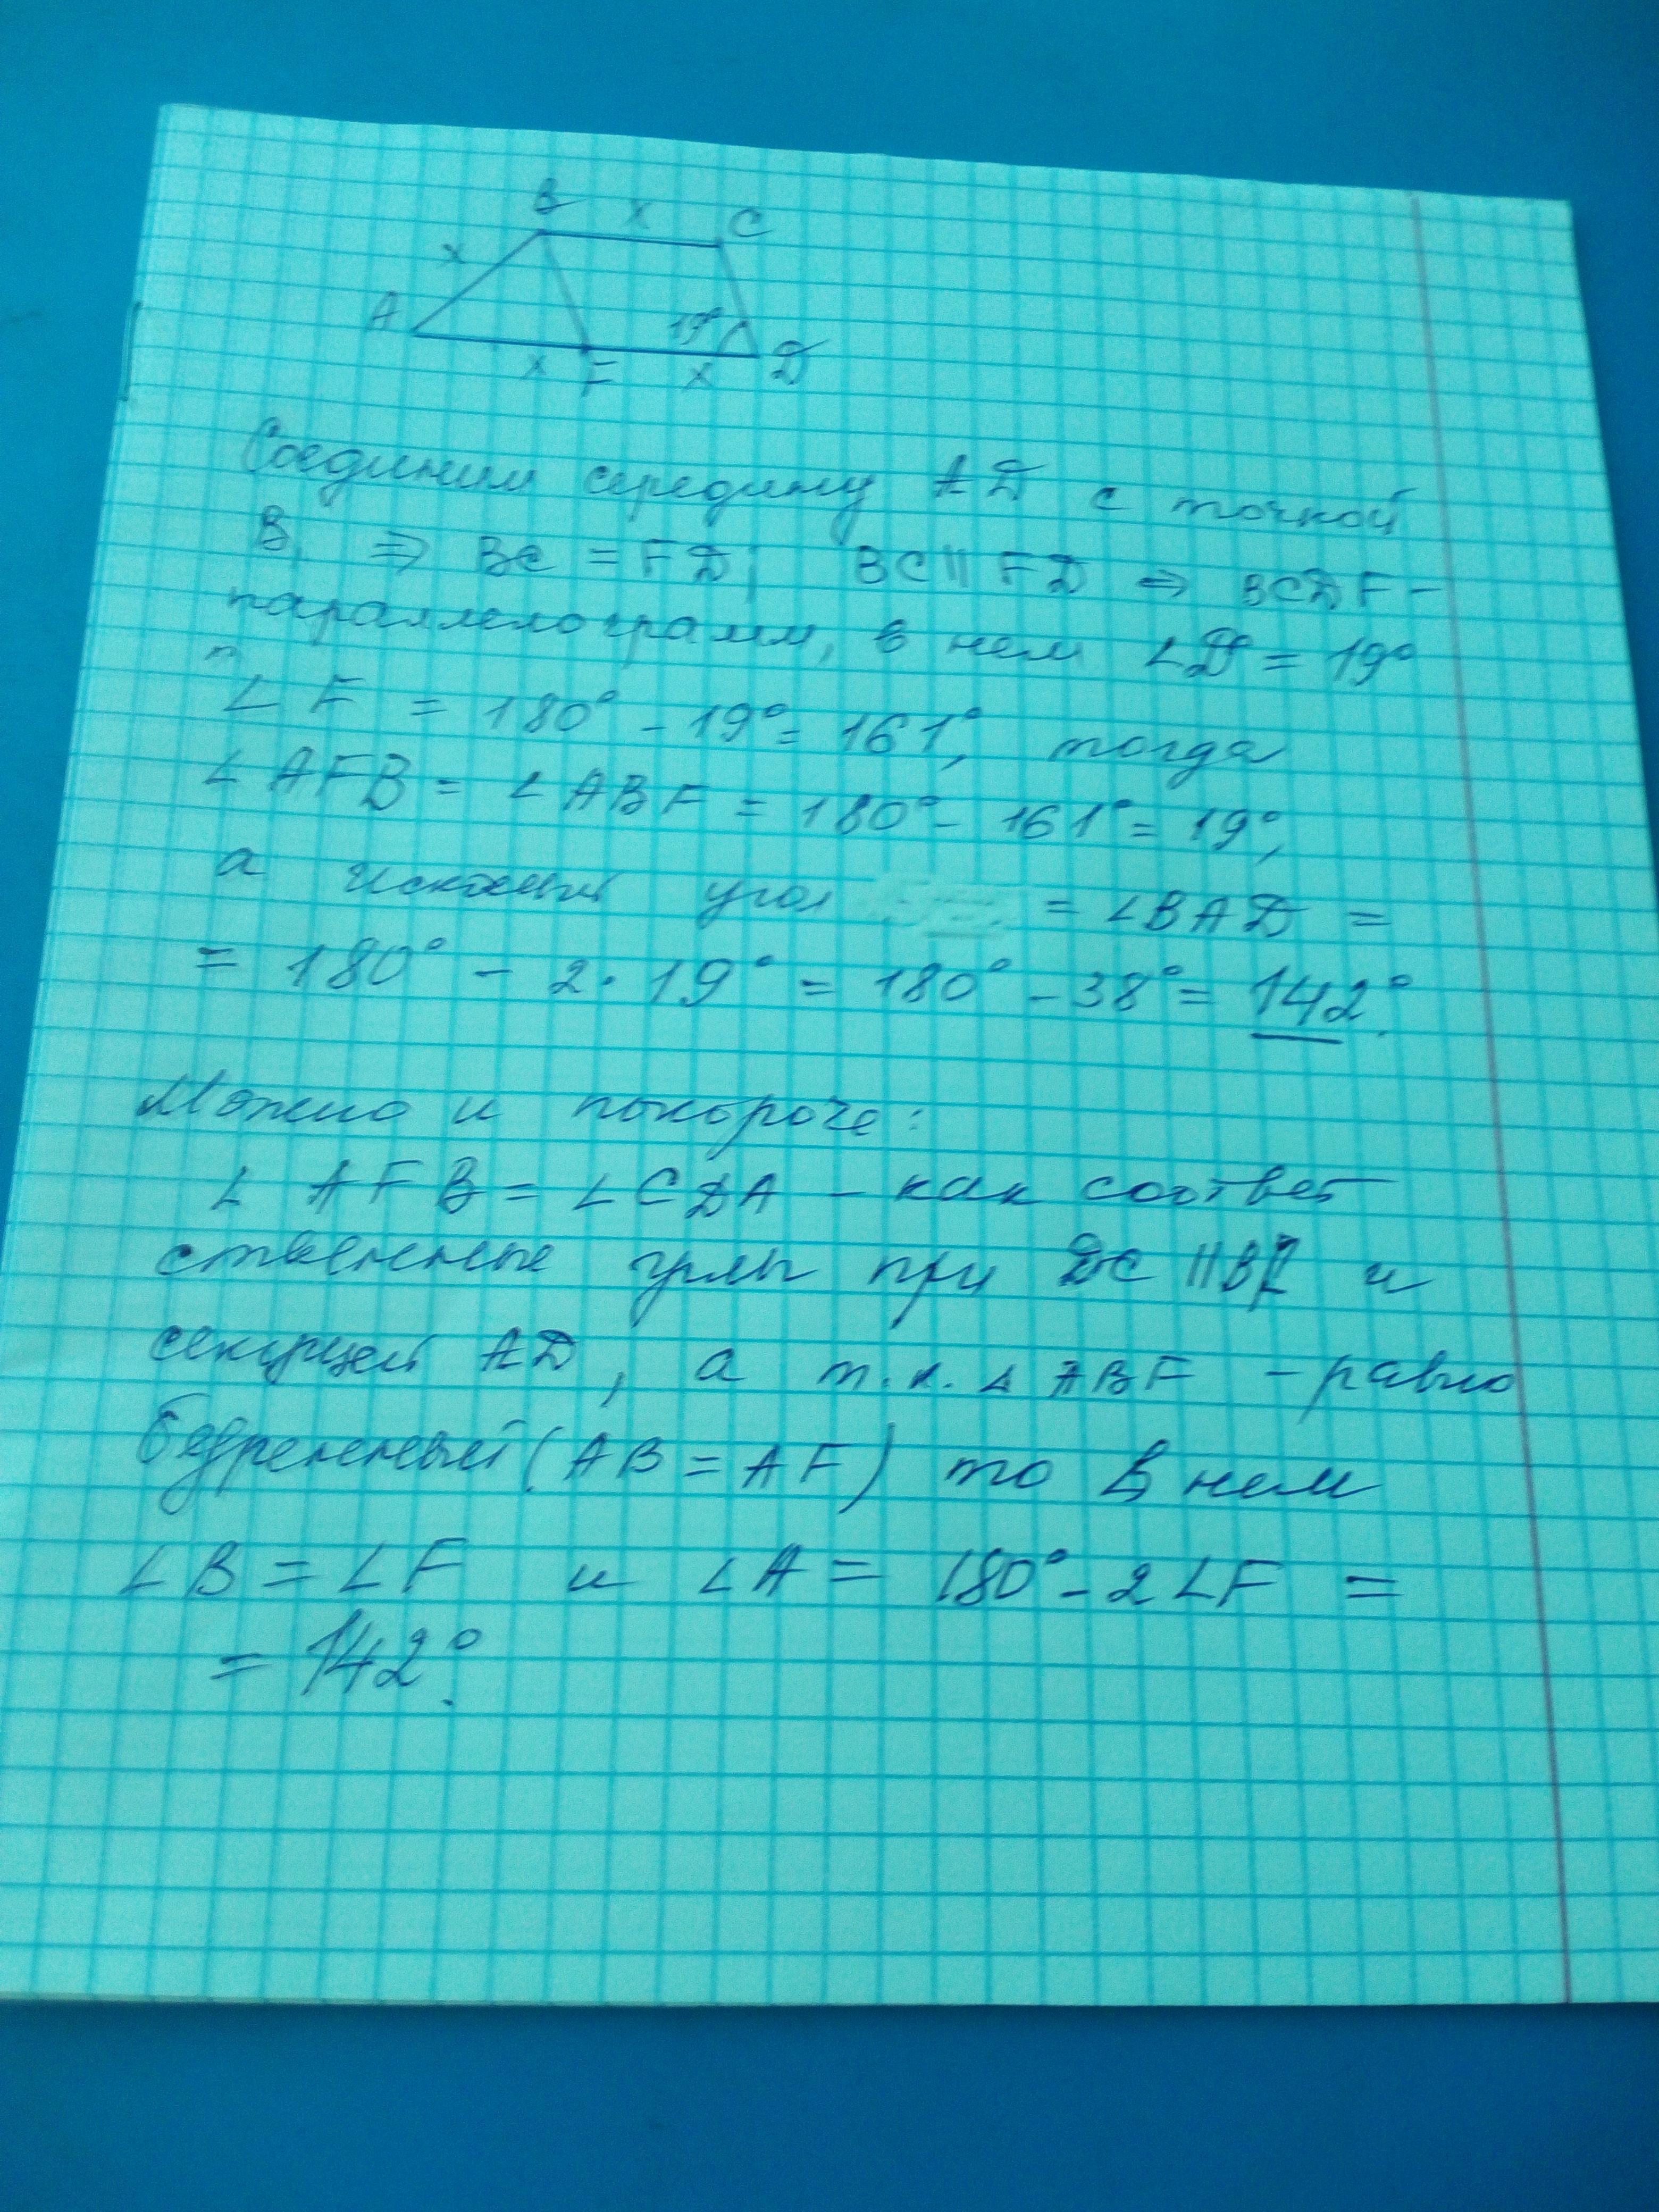 B x C
x
A 19°
x F x D
Соединим середину AD с точкой
B, ⇒ BC = FD; BC || FD ⇒ BCDF –
параллелограмм, в нем ∠D = 19°
∠F = 180° - 19° = 161°, тогда
∠AFB = ∠ABF = 180° - 161° = 19°,
а искомый угол = ∠BAD =
= 180° - 2·19° = 180° - 38° = 142°.
Можно и покороче:
∠AFB = ∠CDA – как соответ
ственные углы при DC || BF и
секущей AD, а т.к. ∆ABF – равно
бедренный (AB = AF) то в нем
∠B = ∠F и ∠A = 180° - 2∠F =
= 142°.